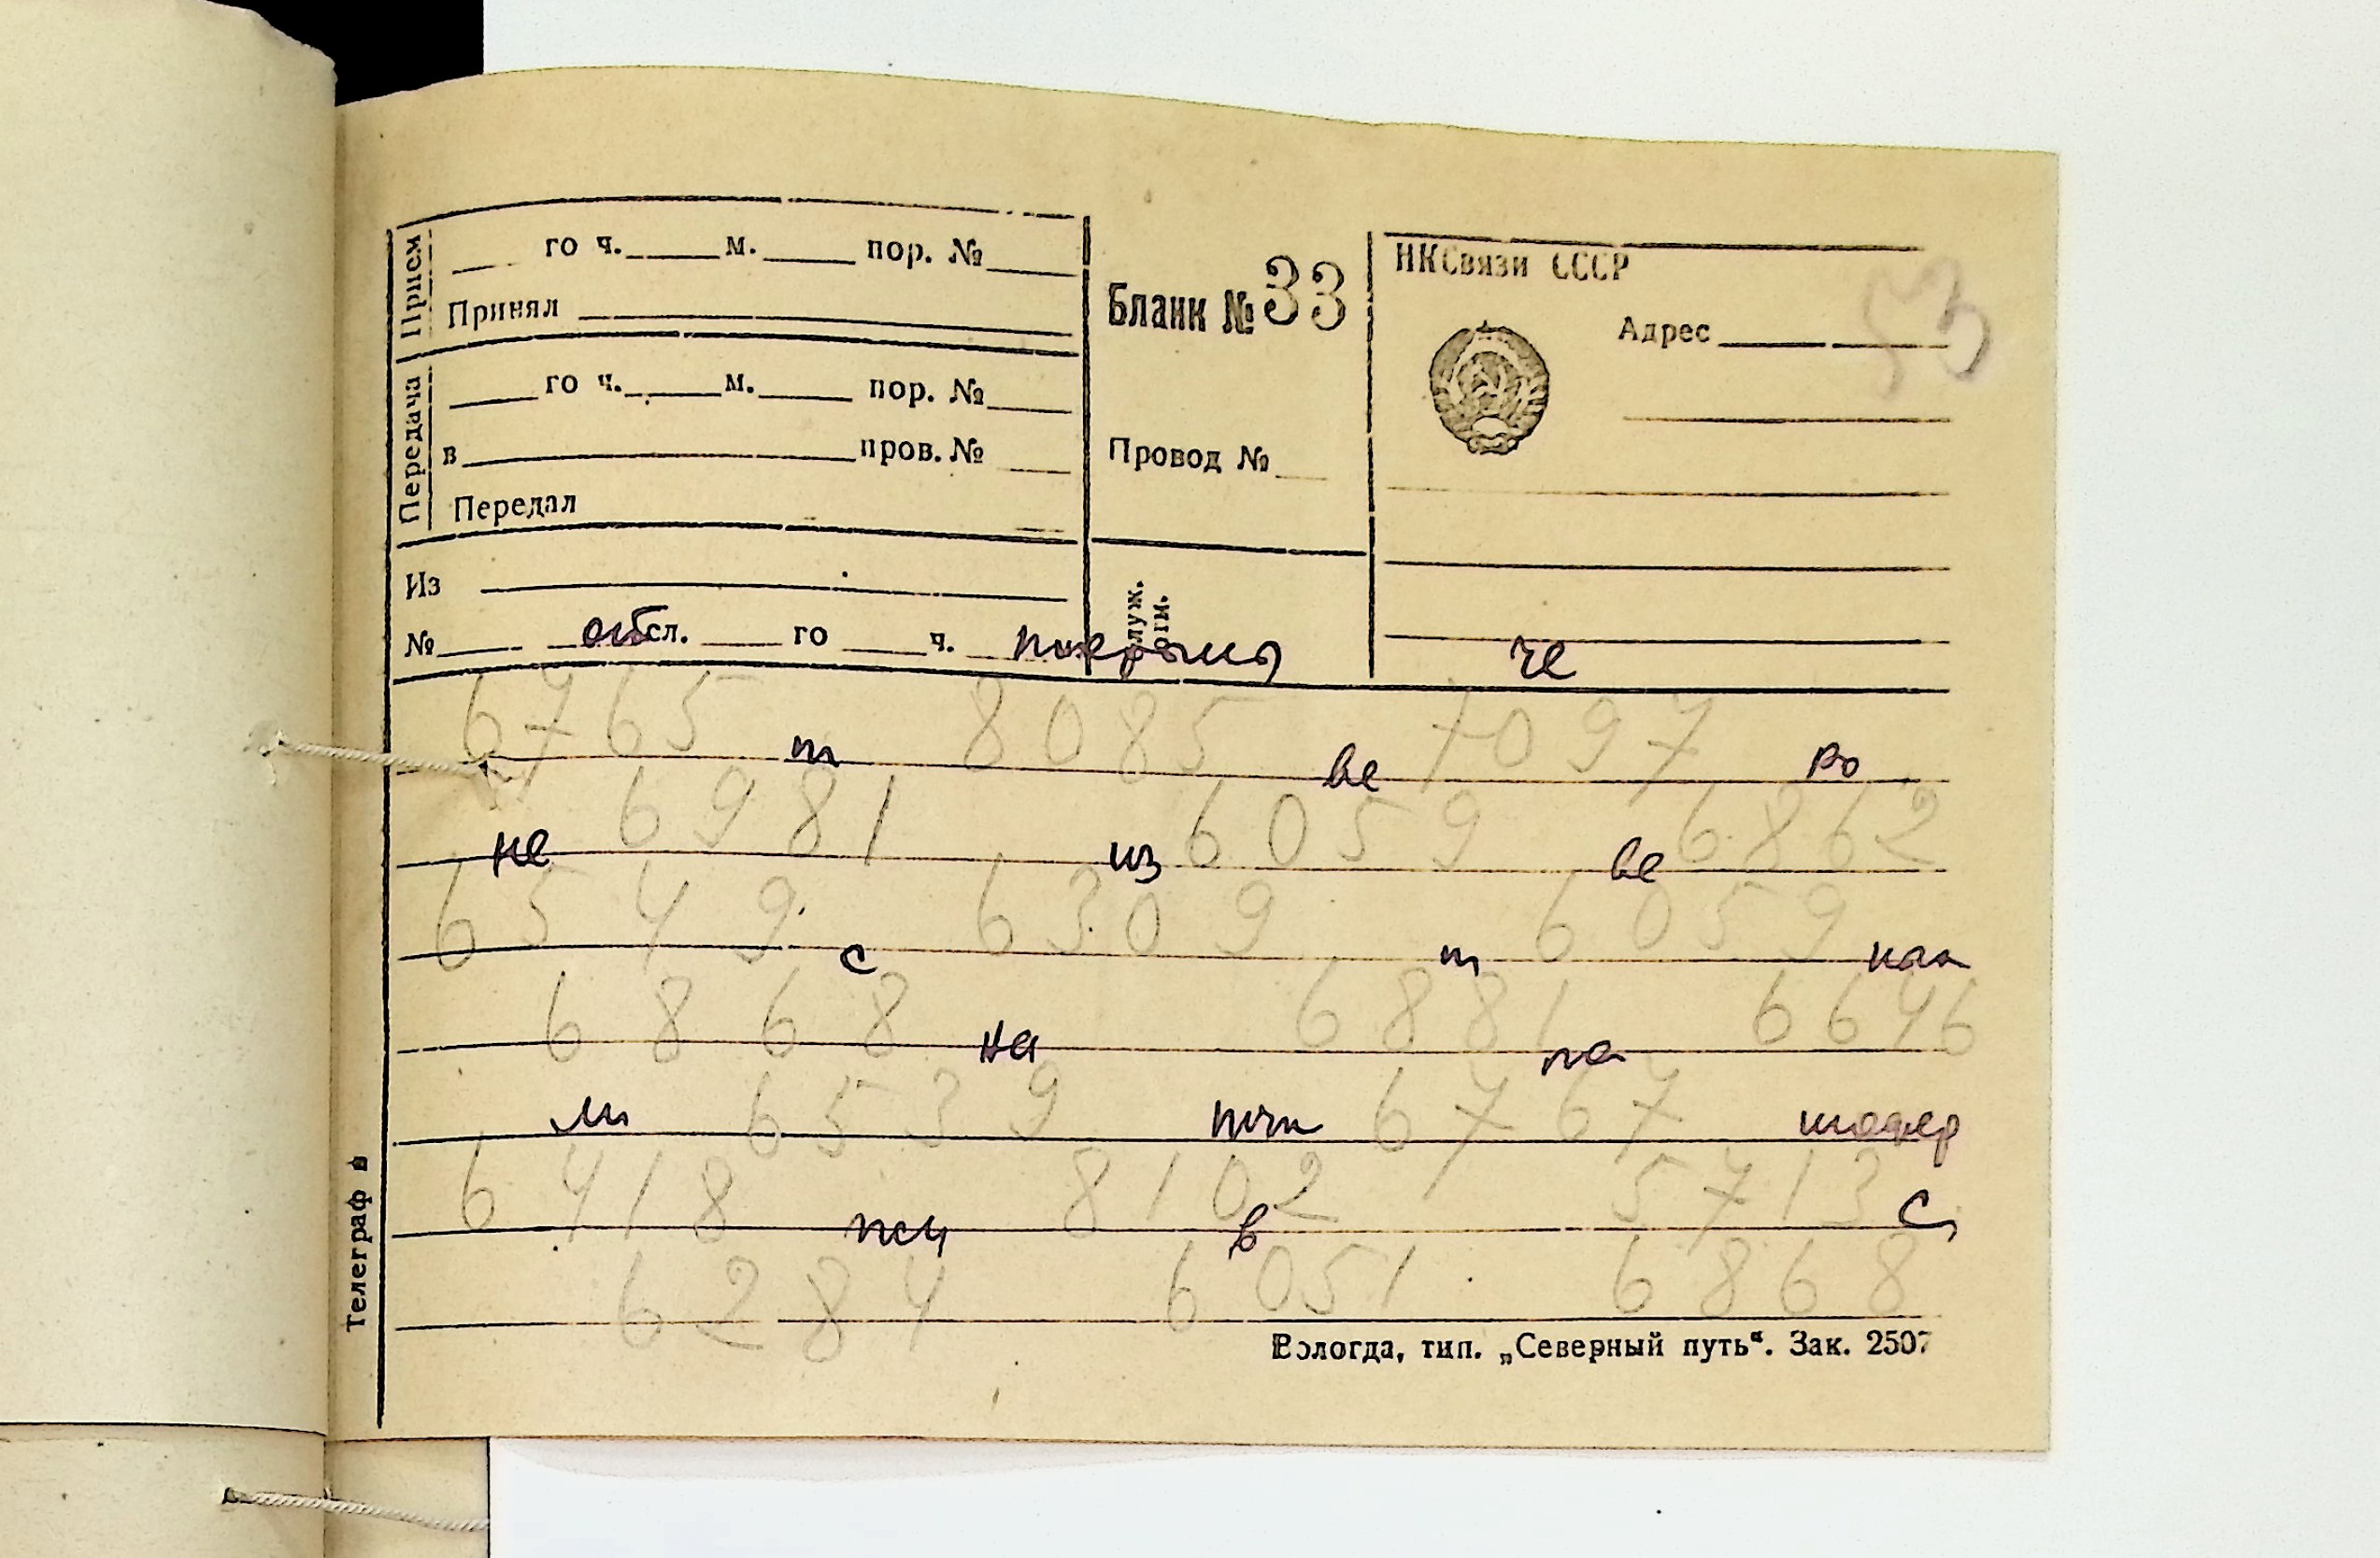 Прием
го ч. м. пор. №
Принял
Передача
го ч. м. пор. №
в пров. №
Передал
Из
№ сл. го ч.
Бланк № 33
Провод №
НКСвязи СССР
Адрес
53
че
6765 8085 7097
т ве ро
6981 6059 6862
не из ве
6549 6309 6059
с т как
6868 6881 6646
на по
ли 6539 тчк 6767 шофер
6418 8102 5713
псч в с
6284 6051 6868
Телеграф в
Вологда, тип. „Северный путь“. Зак. 2507